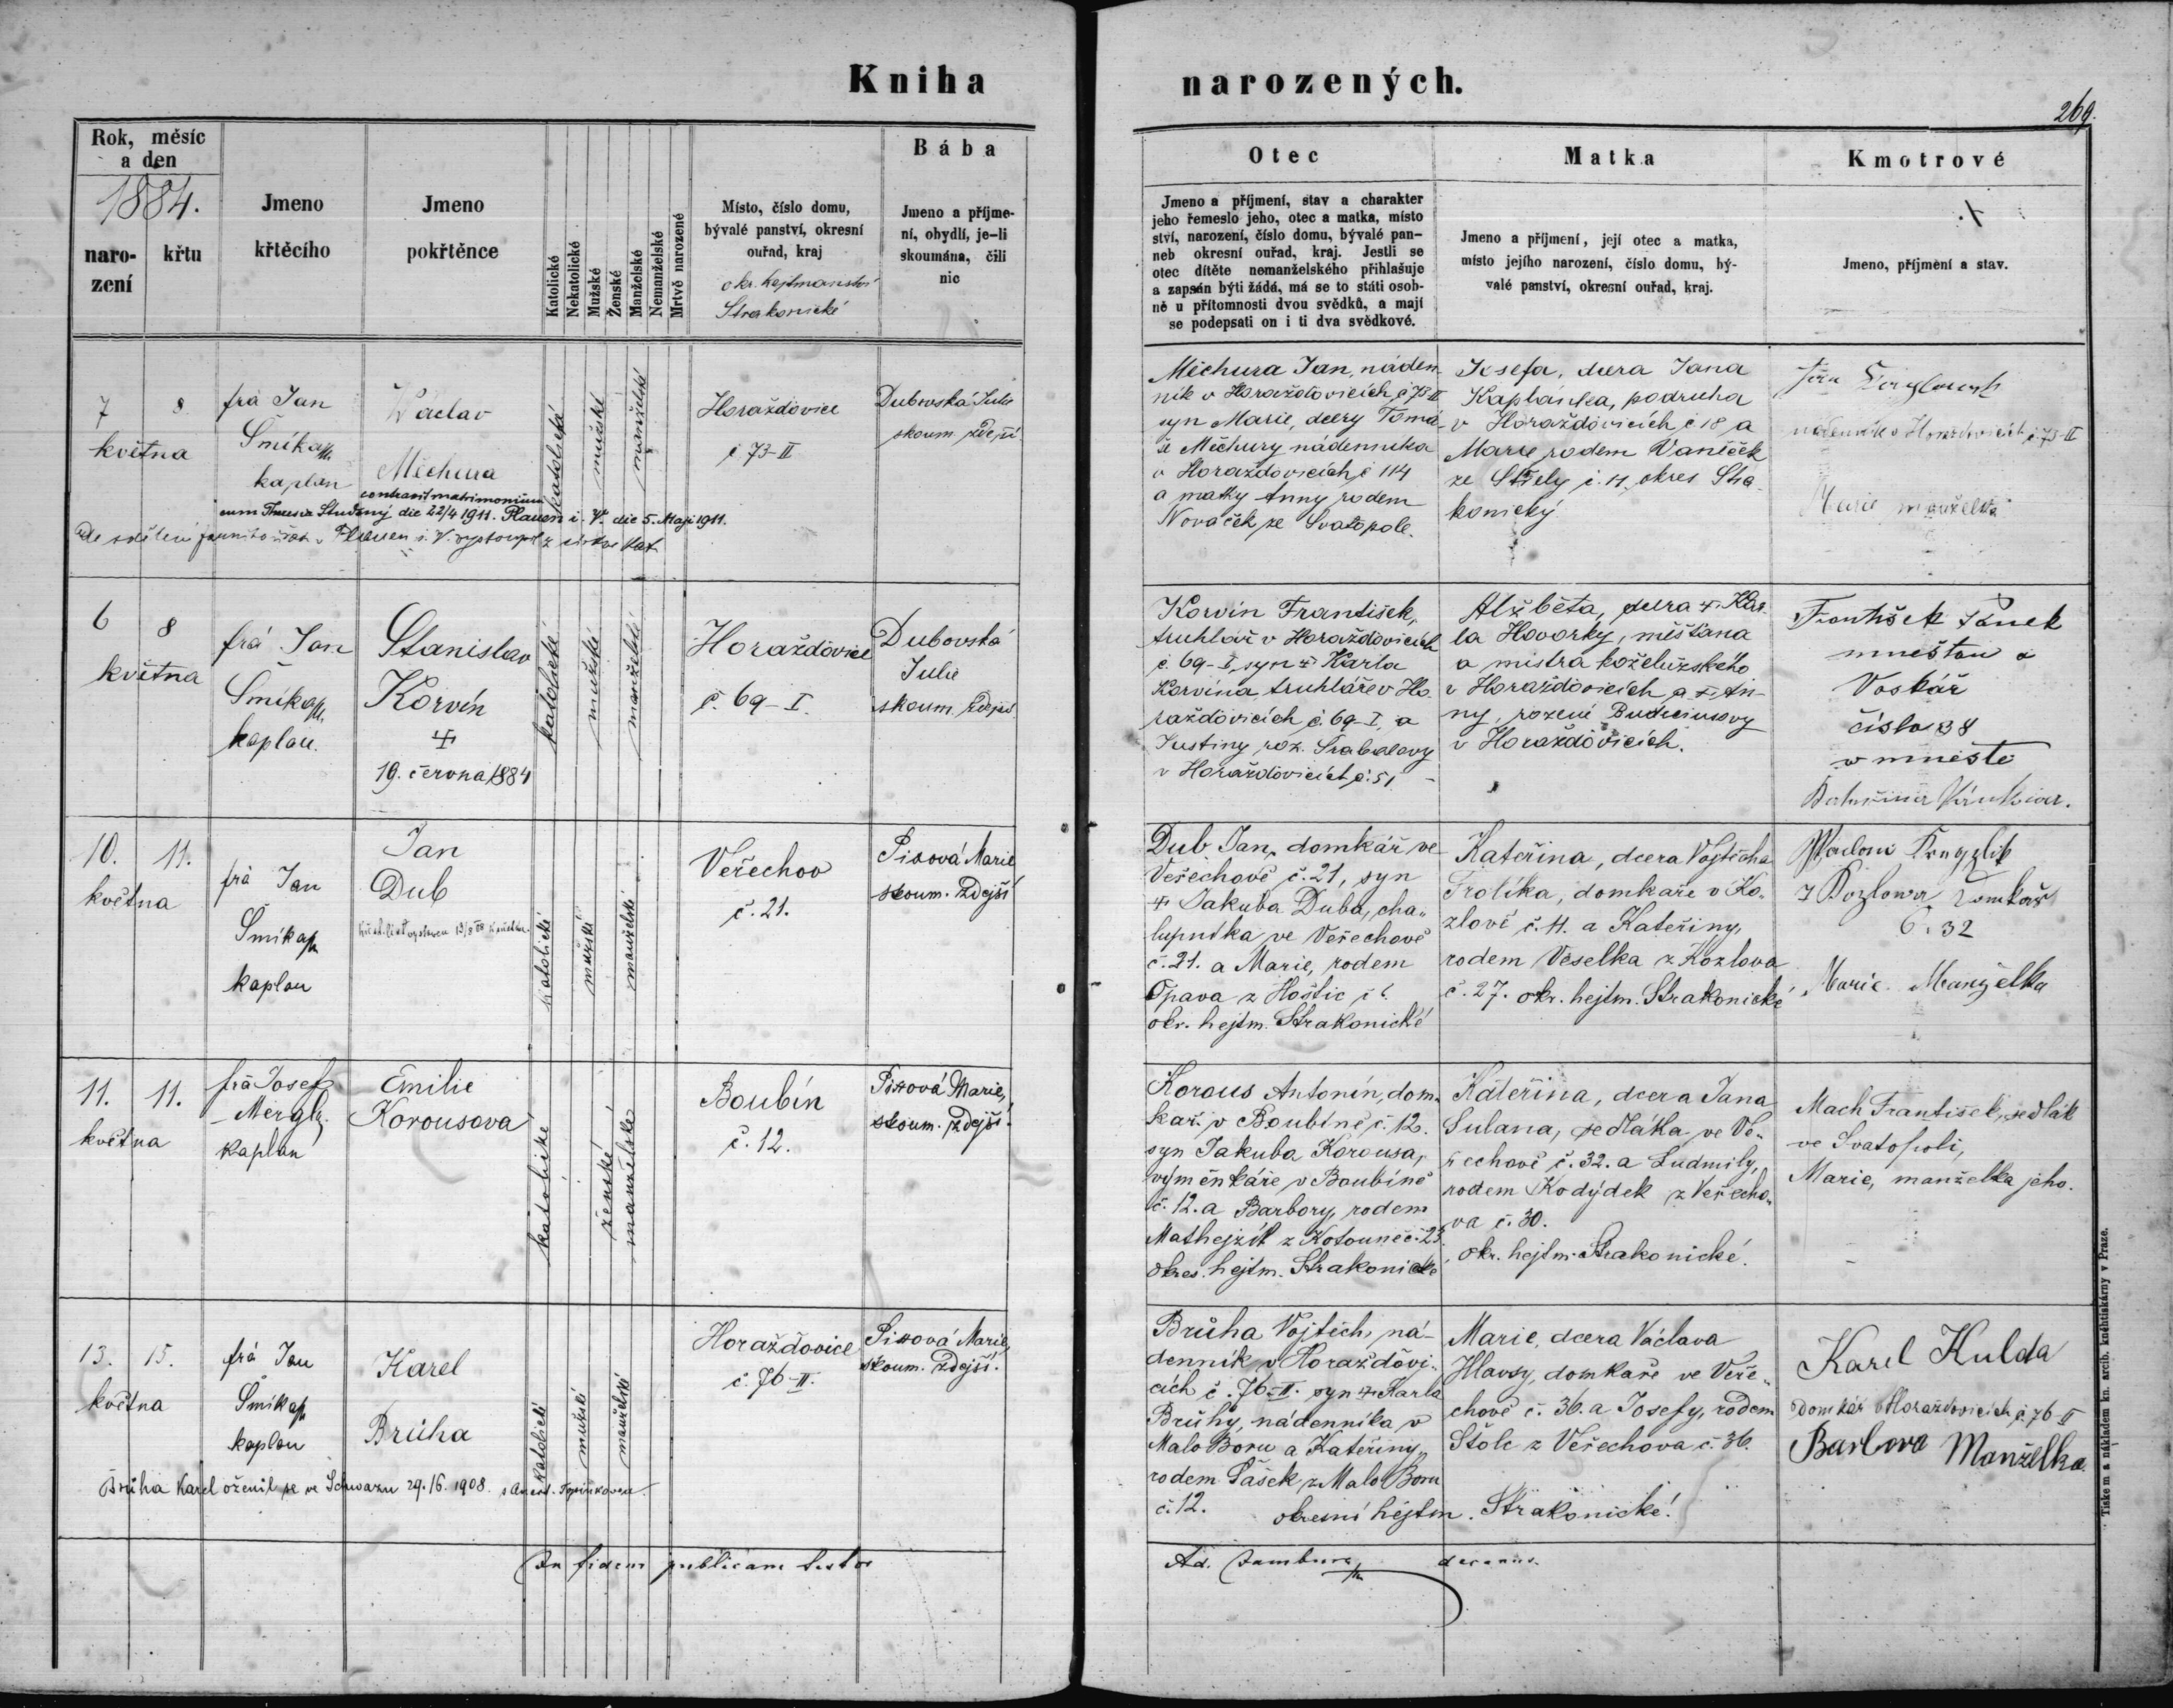 Kniha narozených.
269.
Rok, měsíc
a den
1884.
naro-
zení
křtu
Jmeno
křtěcího
Jmeno
pokřtěnce
Katolické
Nekatolické
Mužské
Ženské
Manželské
Nemanželské
Mrtvě narozené
Místo, číslo domu,
bývalé panství, okresní
ouřad, kraj
okr. hejtmanství
Strakonické
Bába
Jmeno a příjme-
ní, obydlí, je-li
skoumána, čili
nic
Otec
Jmeno a příjmení, stav a charakter
jeho řemeslo jeho, otec a matka, místo
ství, narození, číslo domu, bývalé pan-
neb okresní ouřad, kraj. Jestli se
otec dítěte nemanželského přihlašuje
a zapsán býti žádá, má se to státi osob-
ně u přítomnosti dvou svědků, a mají
se podepsati on i ti dva svědkové.
Matka
Jmeno a příjmení, její otec a matka,
místo jejího narození, číslo domu, bý-
valé panství, okresní ouřad, kraj.
Kmotrové
Jmeno, příjmění a stav.
7 8
května
frá Jan
Šmíka
kaplan
Václav
Měchura
contraxit matrimonium
cum Theresia Studený die 22/4 1911. Plauen i. V. die 5. Maji 1911.
Plauen i. V. vystoupil z církve kat.
katolické
mužské
manželské
Horažďovice
č 73-II
Dubovská Julie
skoum. zdejší
Měchura Jan, náden-
ník v Horažďovicích č 73-II
syn Marie, dcery Tomá-
še Měchury nádenníka
v Horažďovicích č 114
a matky Anny rodem
Nováček ze Svatopole.
Josefa, dcera Jana
Kaplánka, podruha
v Horažďovicích č 18 a
Marie rodem Vaněček
ze Střely č. 11, okres Stra-
konický
nádenník v Horažďovicích č. 73-II
Marie manželka
6 8
května
frá Jan
Šmíka
kaplan.
Stanislav
Korvín
19. června 1884
katolické
mužské
manželské
Horažďovice
č. 69-I.
Dubovská
Julie
skoum. zdejší
Korvín František,
truhlář v Horažďovicích
č. 69-I, syn Karla
Korvína truhláře v Ho-
raždovicích č. 69-I, a
Justiny roz.
v Horažďovicích č. 51
Alžběta, dcera Kar-
la Hovorky, měšťana
a mistra koželužského
v Horažďovicích a An-
ny, rozené
v Horažďovicích.
František Pánek
mněšťan a
Voskář
číslo 38
w mněstě
10. 11.
května
frá Jan
Šmíka
kaplan
Jan
Dub
katolické
mužské
manželské
Veřechov
č. 21.
Pixová Marie
skoum. zdejší
Dub Jan, domkář ve
Veřechově č. 21, syn
Jakuba Duba, cha-
lupníka ve Veřechově
č. 21. a Marie, rodem
Opava z Hoštic č 6.
okr. hejtm. Strakonické
Kateřina, dcera Vojtěcha
Frolíka, domkaře v Ko-
zlově č. 11. a Kateřiny,
rodem Veselka z Kozlova
č. 27. okr. hejtm. Strakonické
z Kozlowa Domkař
č. 32
Marie Manželka
11. 11.
května
frá Josef
Mergl
kaplan
Emilie
Korousova
katolické
ženské
manželské
Boubín
č. 12.
Pixová Marie,
skoum. zdejší.
Korous Antonín, dom-
kař v Boubíně č. 12.
syn Jakuba Korousa,
výměnkáře v Boubíně
č. 12. a Barbory, rodem
Mathejzík z Kotouně č. 25
okres. hejtm. Strakonické
Kateřina, dcera Jana
Sulana, sedláka ve Ve-
řechově č. 32. a Ludmily,
rodem Kodýdek z Veřecho-
va č. 30.
okr. hejtm. Strakonické.
Mach František, sedlák
ve Svatopoli,
Marie, manželka jeho.
13. 15.
května
frá Jan
Šmíka
kaplan
Karel
Brůha
Brůha Karel oženil se ve Schwarzu 29./6. 1908.
katolické
mužské
manželské
Horažďovice
č. 76-II.
Pixová Marie,
skoum. zdejší.
Brůha Vojtěch, ná-
denník v Horažďovi-
cích č. 76-II. syn Karla
Brůhy, nádenníka v
Malo Boru a Kateřiny,
rodem Pašek z Malo Boru
č. 12. okresní hejtm. Strakonické!
Marie, dcera Václava
Hlavsy, domkaře ve Veře-
chově č. 36. a Josefy, rodem
Štolc z Veřechova č. 36.
Karel Kulda
Domkář Horažďovicích č. 76-II
Barbora Manželka.
In fidem publicam testor
Ad. decanus.
Tiskem a nákladem kn. arcib. knihtiskárny v Praze.